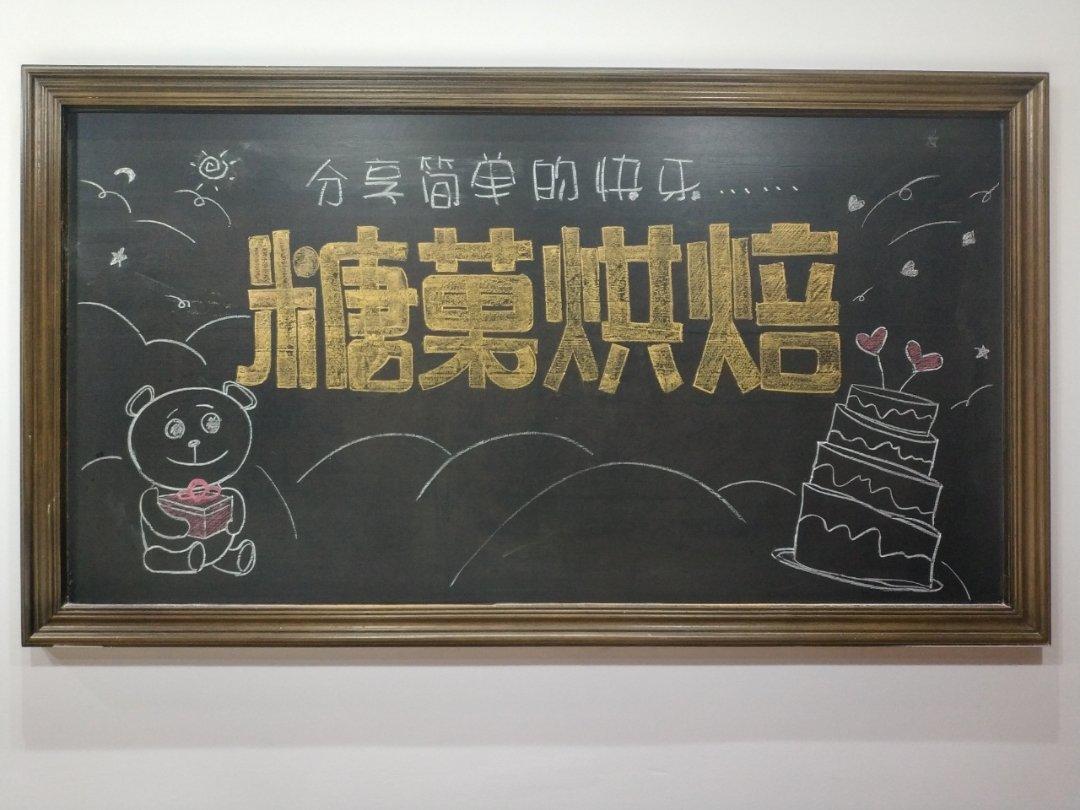 分享简单的快乐……
糖菓烘焙